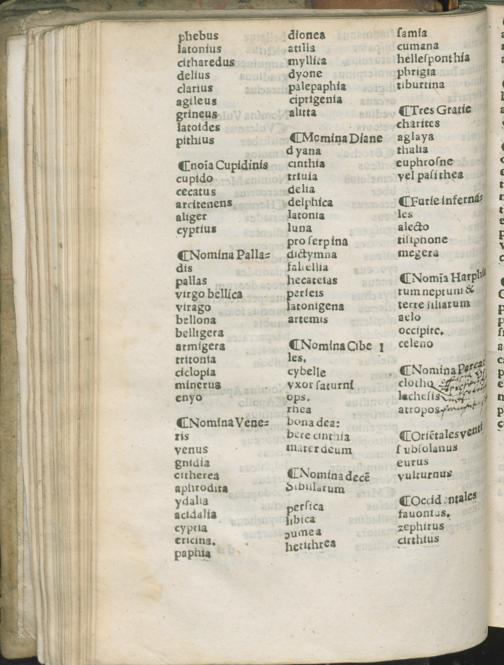 phebus
latonius
citharedus
delius
clarius
agileus
grineus
latoides
pithius
¶noīa Cupidinis
cupido
cecatus
arcitenens
aliger
cyprius
¶Nomina Palla=
dis
pallas
virgo bellica
virago
bellona
belligera
armigera
tritonia
ciclopia
minerua
enyo
¶Nomina Vene=
ris
venus
gnidia
citherea
aphrodita
ydalia
acidalia
cypria
ericina.
paphia
dionea
atilia
myllita
dyone
palepaphia
ciprigenia
alitta
¶Momina Diane
dyana
cinthia
triuia
delia
delphica
latonia
luna
proserpina
dictymna
fasellia
hecateias
perseis
latonigena
artemis
¶Nomina Cibe
les.
cybelle
vxor saturni
ops.
rhea
bona dea:
berecinthia
mater deum
¶Nomina decē
Sibillarum
persica
libica
cumea
herithrea
samia
cumana
hellesponthia
phrigia
tiburtina
¶Tres Gratie
charites
aglaya
thalia
euphrosne
vel pasithea
¶Furie inferna=
les
alecto
tisiphone
megera
¶Nomīa Harpia
rum neptuni &
terre filiarum
aelo
occipite.
celeno
¶Nomina Parcar
clotho
lachesis
atropos
¶Oriētales venti
subsolanus
eurus
vulturnus
¶Occidentales
fauonius.
zephirus
cirthius